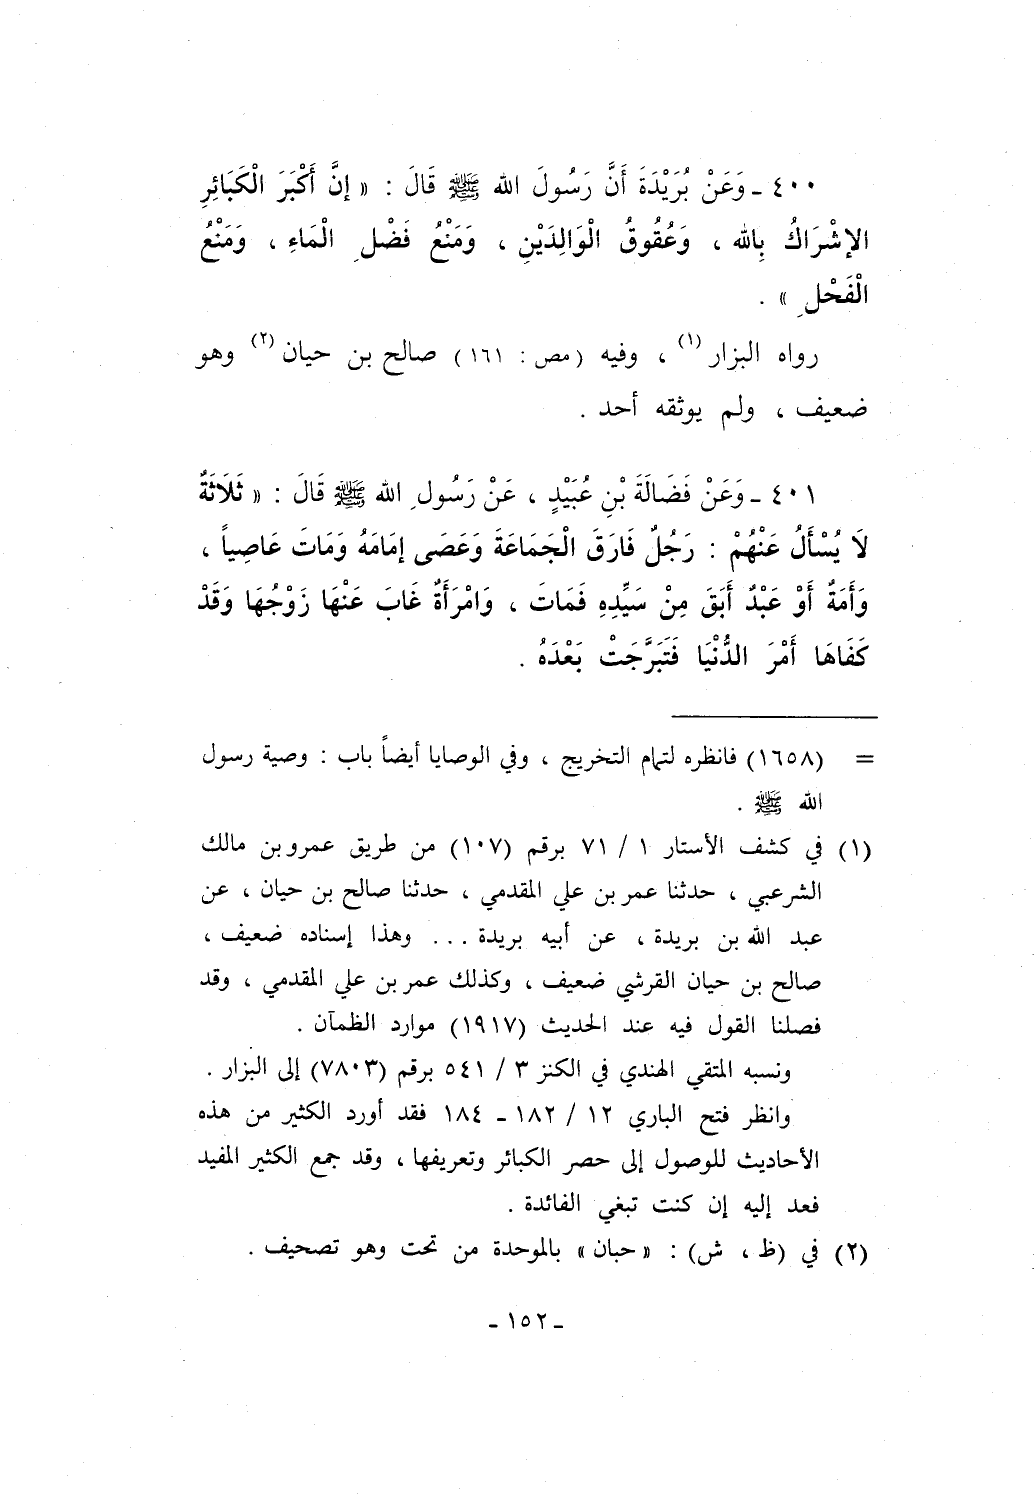 ٤٠٠ ـ وَعَنْ بُرَيْدَةَ أَنَّ رَسُولَ الله ﷺ قَالَ : « إنَّ أَكْبَرَ الْكَبَائِرِ
الإشْرَاكُ بِالله ، وَعُقُوقُ الْوَالِدَيْنِ ، وَمَنْعُ فَضْلِ الْمَاءِ ، وَمَنْعُ
الْفَحْلِ » .
رواه البزار (١) ، وفيه ( مص : ١٦١ ) صالح بن حيان (٢) وهو
ضعيف ، ولم يوثقه أحد .
٤٠١ ـ وَعَنْ فَضَالَةَ بْنِ عُبَيْدٍ ، عَنْ رَسُولِ الله ﷺ قَالَ : « ثَلَاثَةٌ
لَا يُسْأَلُ عَنْهُمْ : رَجُلٌ فَارَقَ الْجَمَاعَةَ وَعَصَى إمَامَهُ وَمَاتَ عَاصِياً ،
وَأَمَةٌ أَوْ عَبْدٌ أَبَقَ مِنْ سَيِّدِهِ فَمَاتَ ، وَامْرَأَةٌ غَابَ عَنْهَا زَوْجُهَا وَقَدْ
كَفَاهَا أَمْرَ الدُّنْيَا فَتَبَرَّجَتْ بَعْدَهُ .
= (١٦٥٨) فانظره لتمام التخريج ، وفي الوصايا أيضاً باب : وصية رسول
الله ﷺ .
(١) في كشف الأستار ١ / ٧١ برقم (١٠٧) من طريق عمرو بن مالك
الشرعبي ، حدثنا عمر بن علي المقدمي ، حدثنا صالح بن حيان ، عن
عبد الله بن بريدة ، عن أبيه بريدة ... وهذا إسناده ضعيف ،
صالح بن حيان القرشي ضعيف ، وكذلك عمر بن علي المقدمي ، وقد
فصلنا القول فيه عند الحديث (١٩١٧) موارد الظمآن .
ونسبه المتقي الهندي في الكنز ٣ / ٥٤١ برقم (٧٨٠٣) إلى البزار .
وانظر فتح الباري ١٢ / ١٨٢ ـ ١٨٤ فقد أورد الكثير من هذه
الأحاديث للوصول إلى حصر الكبائر وتعريفها ، وقد جمع الكثير المفيد
فعد إليه إن كنت تبغي الفائدة .
(٢) في (ظ ، ش) : « حبان » بالموحدة من تحت وهو تصحيف .
ـ ١٥٢ ـ